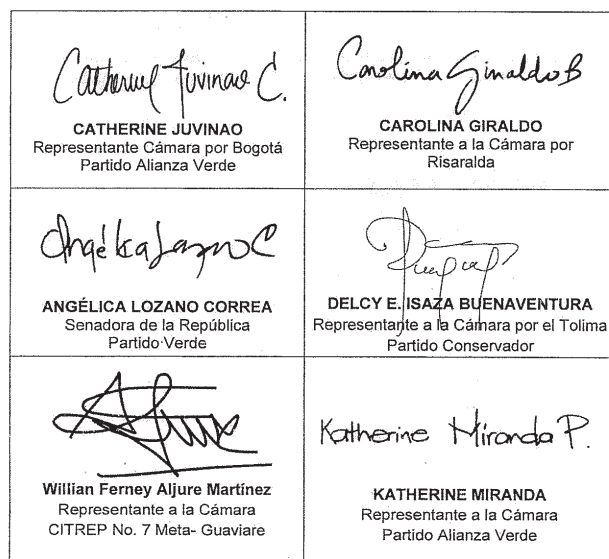 Catherine Juvinao C.
CATHERINE JUVINAO
Representante Cámara por Bogotá
Partido Alianza Verde
Carolina Giraldo B
CAROLINA GIRALDO
Representante a la Cámara por
Risaralda
Angélica Lozano C
ANGÉLICA LOZANO CORREA
Senadora de la República
Partido Verde
DELCY E. ISAZA BUENAVENTURA
Representante a la Cámara por el Tolima
Partido Conservador
Willian Ferney Aljure Martínez
Representante a la Cámara
CITREP No. 7 Meta- Guaviare
Katherine Miranda P.
KATHERINE MIRANDA
Representante a la Cámara
Partido Alianza Verde